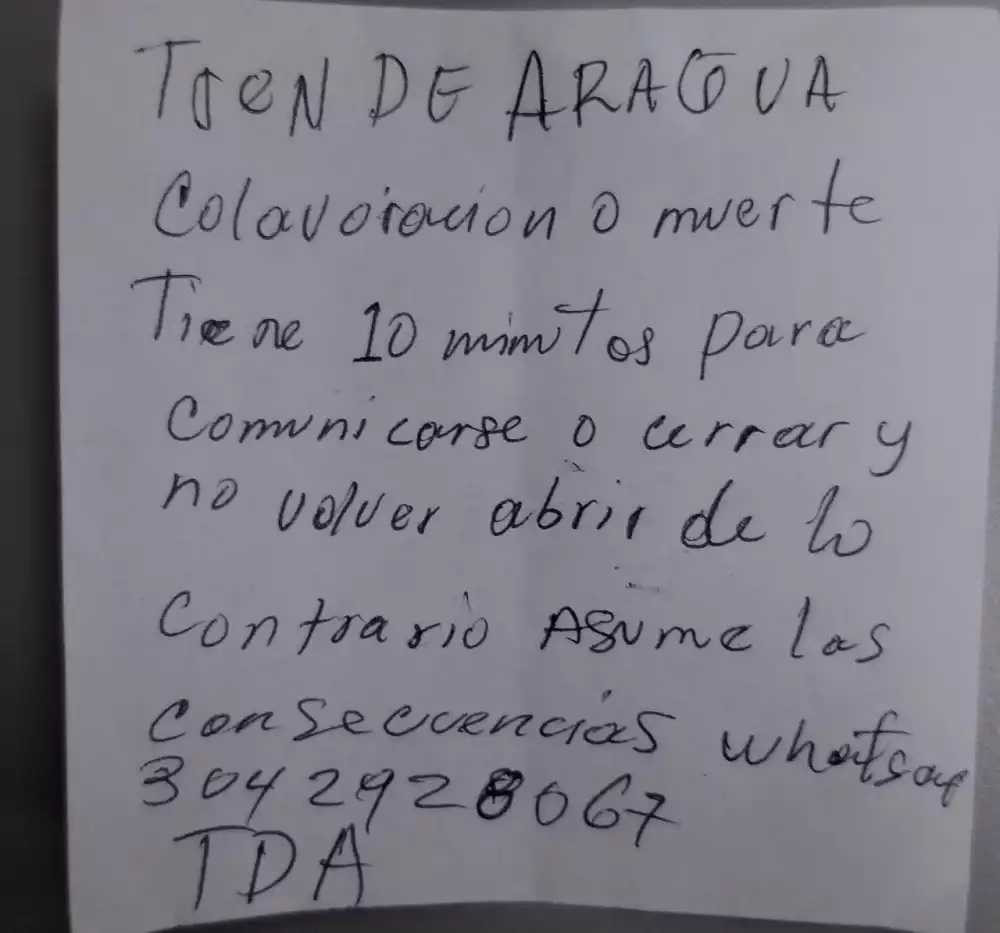 TREN DE ARAGUA
Colavoracion o muerte
Tiene 10 minutos para
comunicarse o cerrar y
no volver abrir de lo
contrario Asume las
consecuencias whatsap
3042928067
TDA